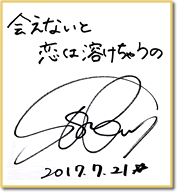 会えないと
恋は溶けちゃうの
2017.7.21☆